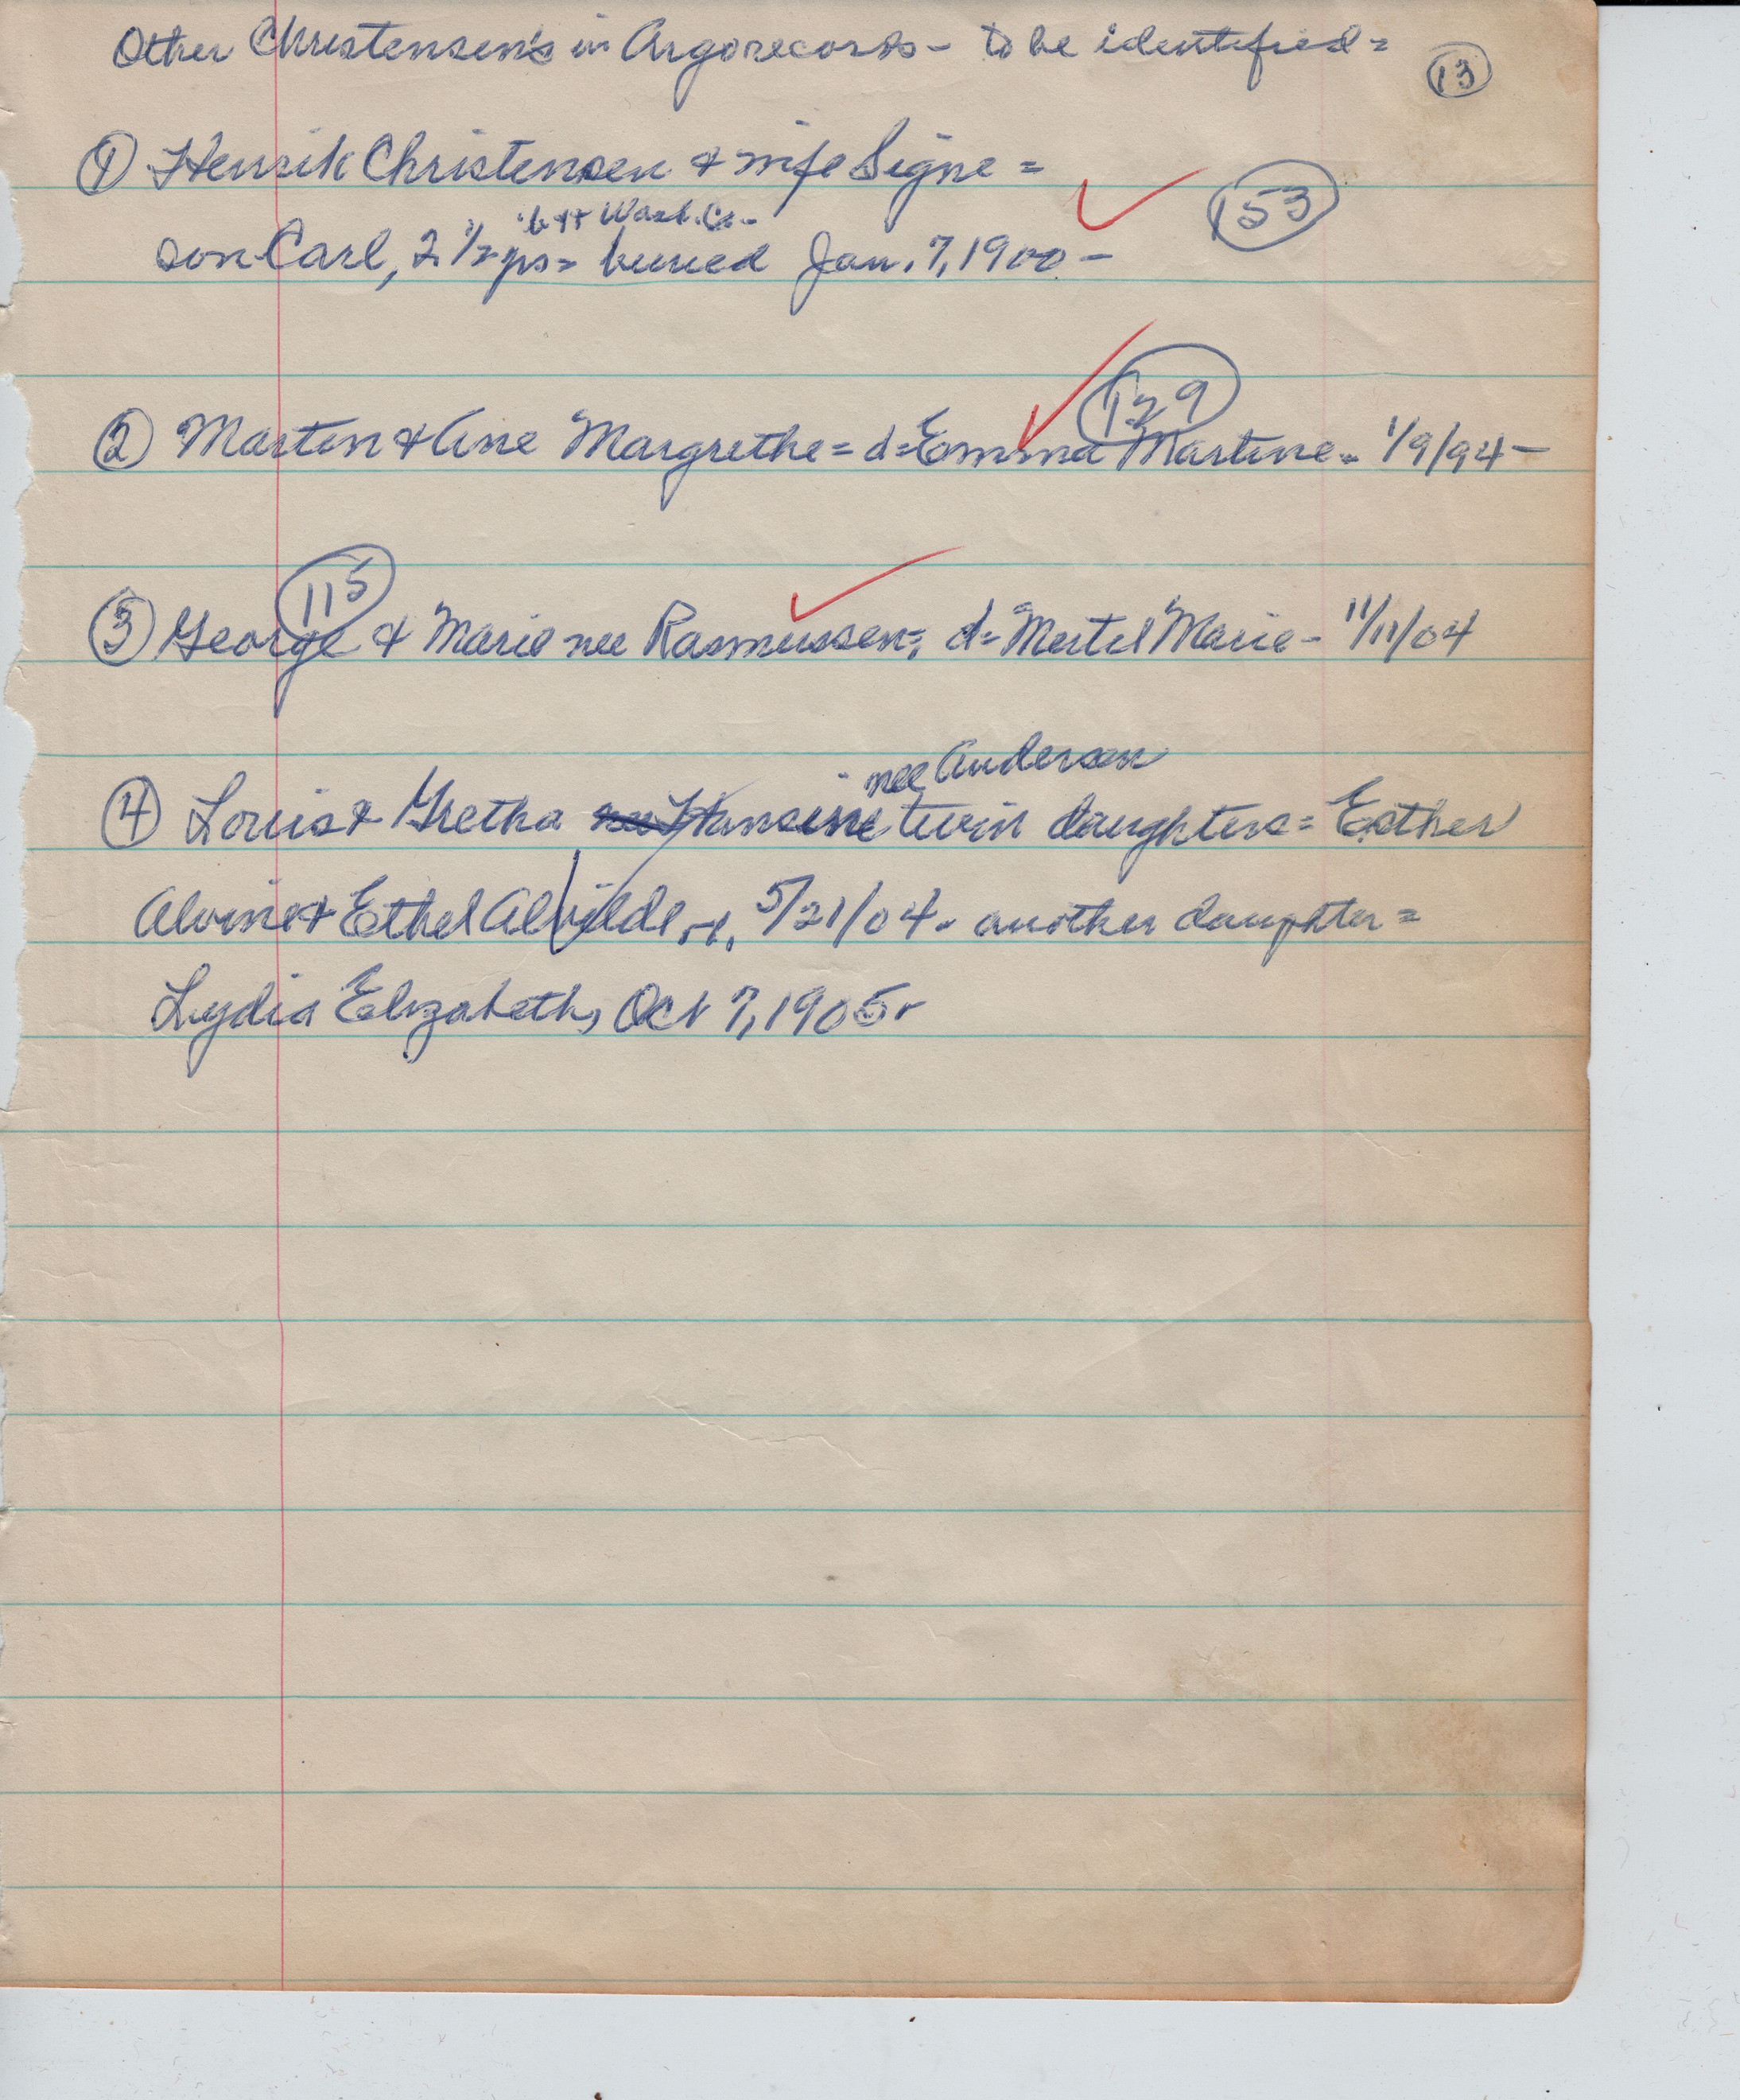 Other Christensen's in Argo records - to be identified =
13
① Henrik Christensen & wife Signe =
153
Wash. Co. -
son Carl, 2 1/2 yrs = buried Jan. 7, 1900 -
129
② Marten & Ane Margrethe = d = Emma Martine - 1/9/94 -
115
③ George & Marie nee Rasmussen =, d = Mertel Marie - 11/11/04
nee Andersen
④ Louis & Gretha nee Hansine twin daughters = Esther
Alvine & Ethel Alvilde, 5/21/04 - another daughter =
Lydia Elizabeth, Oct 7, 1905 -